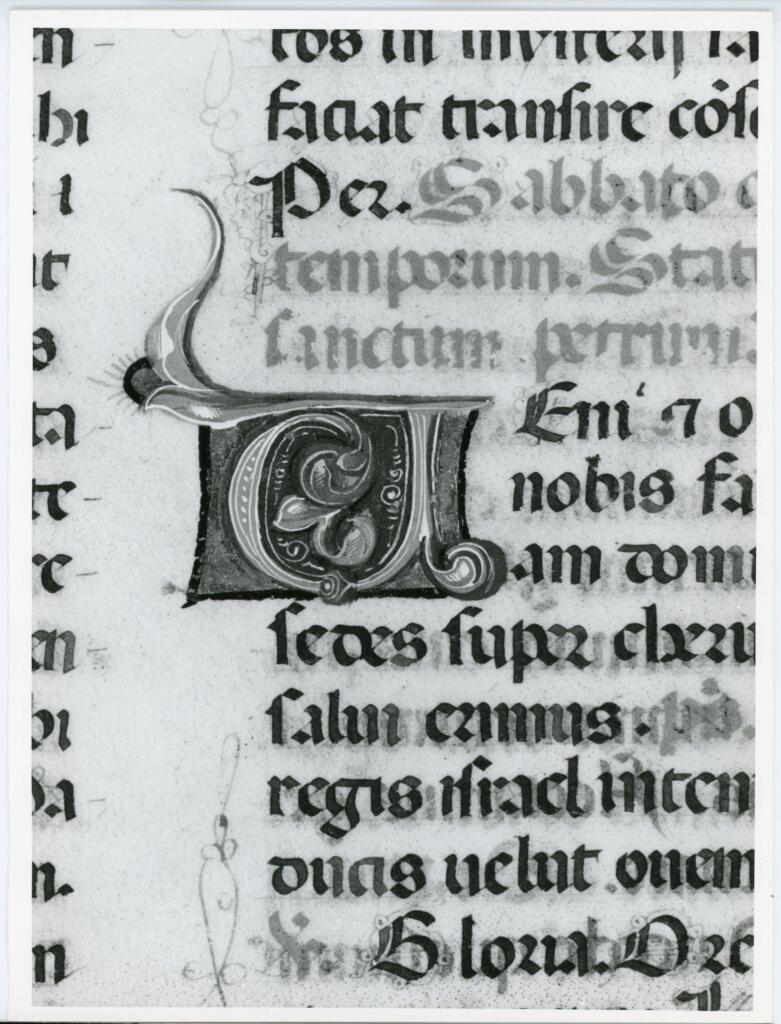 n
hi
i
at
s
ta
te
re
en
bi
da
m.
m
faciat transire cõſ
Per. Sabbato
temporum. Stat
sanctum petrum.
Eni ⁊ o
nobis fa
am domi
ſedes ſuper cheru
ſalui erimus. ps.
regis iſrael inten
ducis uelut ouem
Gloria. Ore